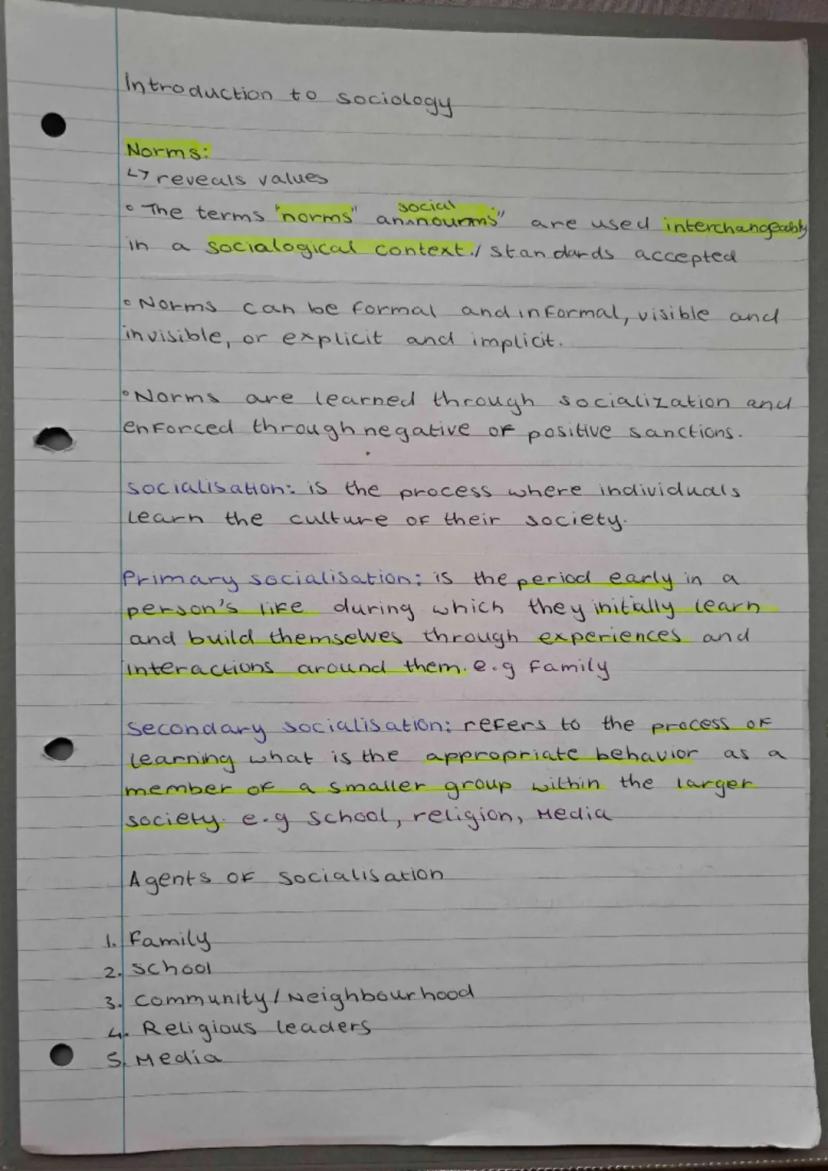 Introduction to sociology
Norms:
↳ reveals values
• The terms "norms" an social nourms" are used interchangeably
in a socialogical context./ standards accepted
• Norms can be formal and informal, visible and
invisible, or explicit and implicit.
• Norms are learned through socialization and
enforced through negative of positive sanctions.
Socialisation: is the process where individuals
learn the culture of their society.
Primary socialisation: is the period early in a
person's life during which they initially learn
and build themselves through experiences and
interactions around them. e.g Family
Secondary socialisation: refers to the process of
learning what is the appropriate behavior as a
member of a smaller group within the larger
society. e.g School, religion, Media
Agents of Socialisation
1. Family
2. School
3. Community/Neighbourhood
4. Religious leaders
5. Media